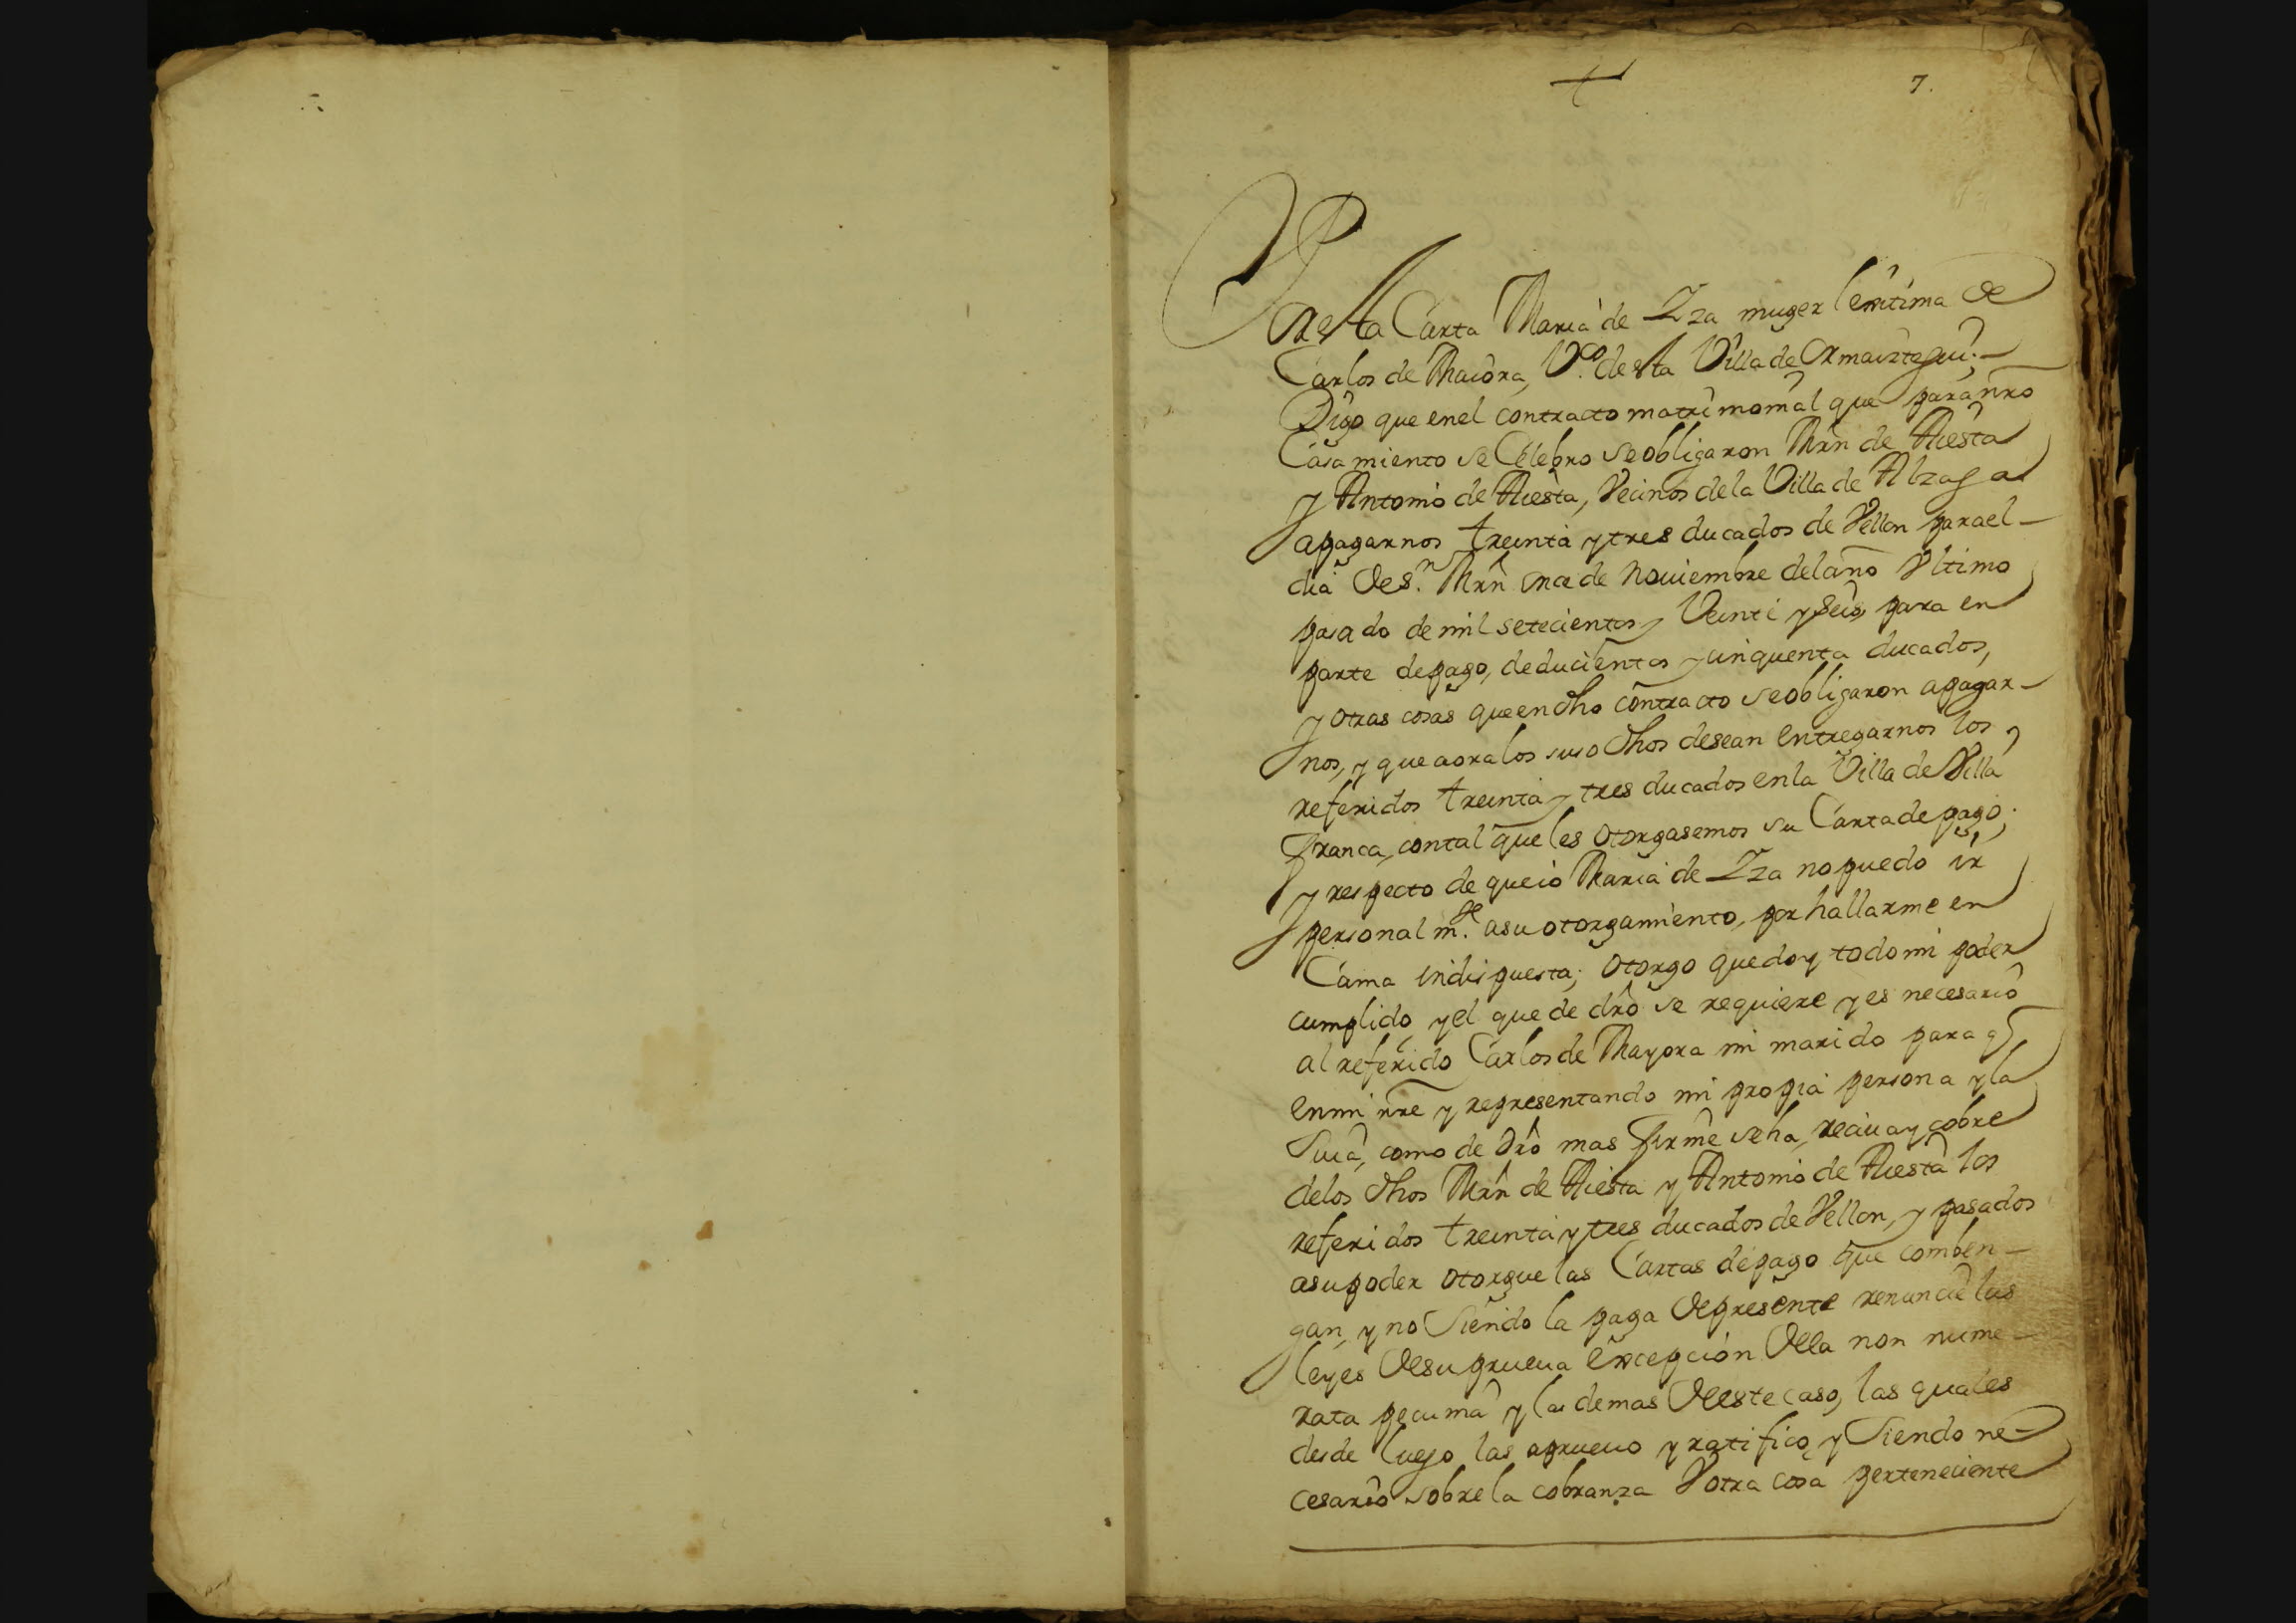 7.
Por esta Carta Maria de Yza muger lexitima de
Carlos de Maiora, V.co desta Villa de Ormaiztegui;
Digo que enel contracto matrimonial que para nro
Casamiento se Celebro se obligaron Mrn de Aiesta
y Antonio de Aiesta, Vecinos dela Villa de Alzaga
apagarnos treinta y tres ducados de Vellon para el
dia de S.n Mrn once de Nouiembre del año Vltimo
pasado de mil setecientos y Veinti y seis, para en
parte de pago, de ducientos y cinquenta ducados,
y otras cosas que en dho contracto se obligaron apagar
nos, y que aora los suso dhos desean entregarnos los
referidos treinta y tres ducados en la Villa de Villa
franca, con tal que les otorgasemos su Carta de pago;
y respecto de que io Maria de Yza no puedo ir
personal m.te a su otorgamiento, por hallarme en
Cama indispuesta; otorgo que doy todo mi poder
cumplido, y el que de dro se requiere y es necesario
al referido Carlos de Mayora mi marido para q
en mi nre y representando mi propia persona y la
Suia, como de dro mas firme se ha, reciua y cobre
delos dhos Mrn de Aiesta y Antonio de Aiesta los
referidos treinta y tres ducados de Vellon, y pasados
asu poder otorgue las Cartas de pago que comben
gan, y no Siendo la paga de presente renuncie las
leyes de su prueua excepcion della non nume
rata pecunia y las demas deeste caso, las quales
desde luego las aprueuo y ratifico, y Siendo ne
cesario sobre la cobranza V otra cosa perteneciente